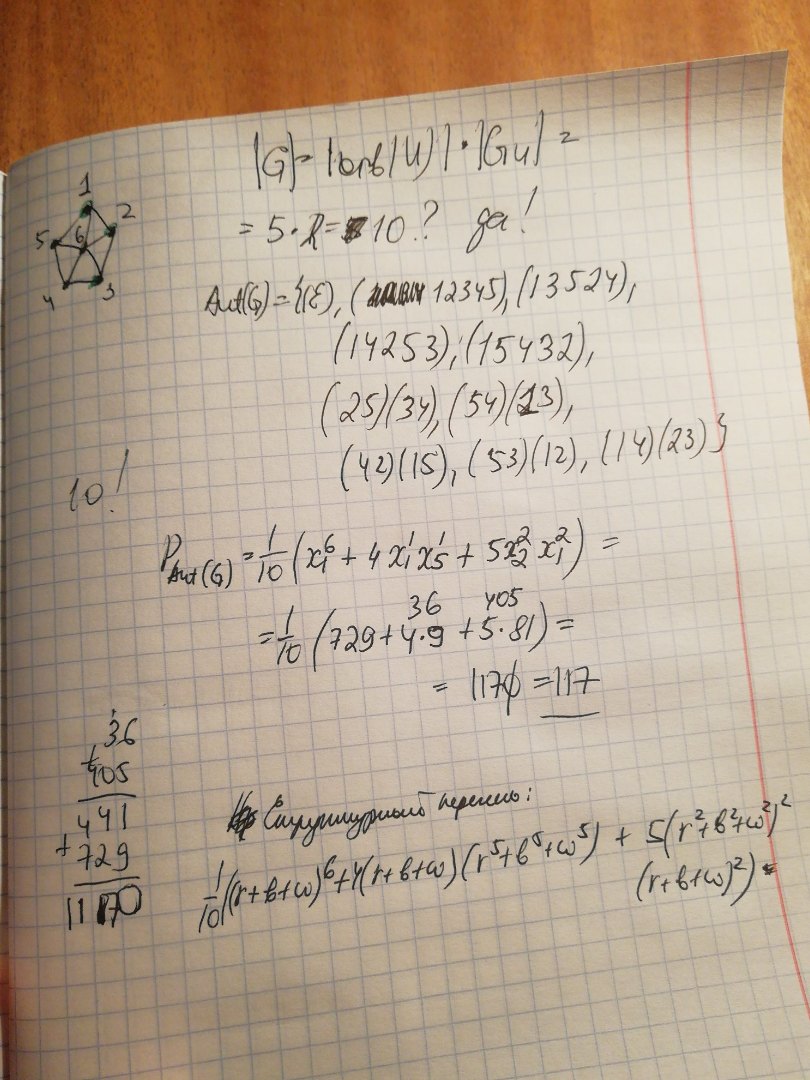 |G| = |orb(u)| · |Gu| =
= 5 · 2 = 10? да!
1
2
5
6
4
3
Aut(G) = {(ε), (12345), (13524),
(14253), (15432),
(25)(34), (54)(13),
(42)(15), (53)(12), (14)(23)}
10!
P_Aut(G) = 1/10 (x₁⁶ + 4x₁¹x₅¹ + 5x₂²x₁²) =
36 405
= 1/10 (729 + 4·9 + 5·81) =
= 1170 = 117
36
+
405
441
+
729
1170
Структурный перечень:
1/10 ((r+b+w)⁶ + 4(r+b+w)(r⁵+b⁵+w⁵) + 5(r²+b²+w²)²
(r+b+w)²) =